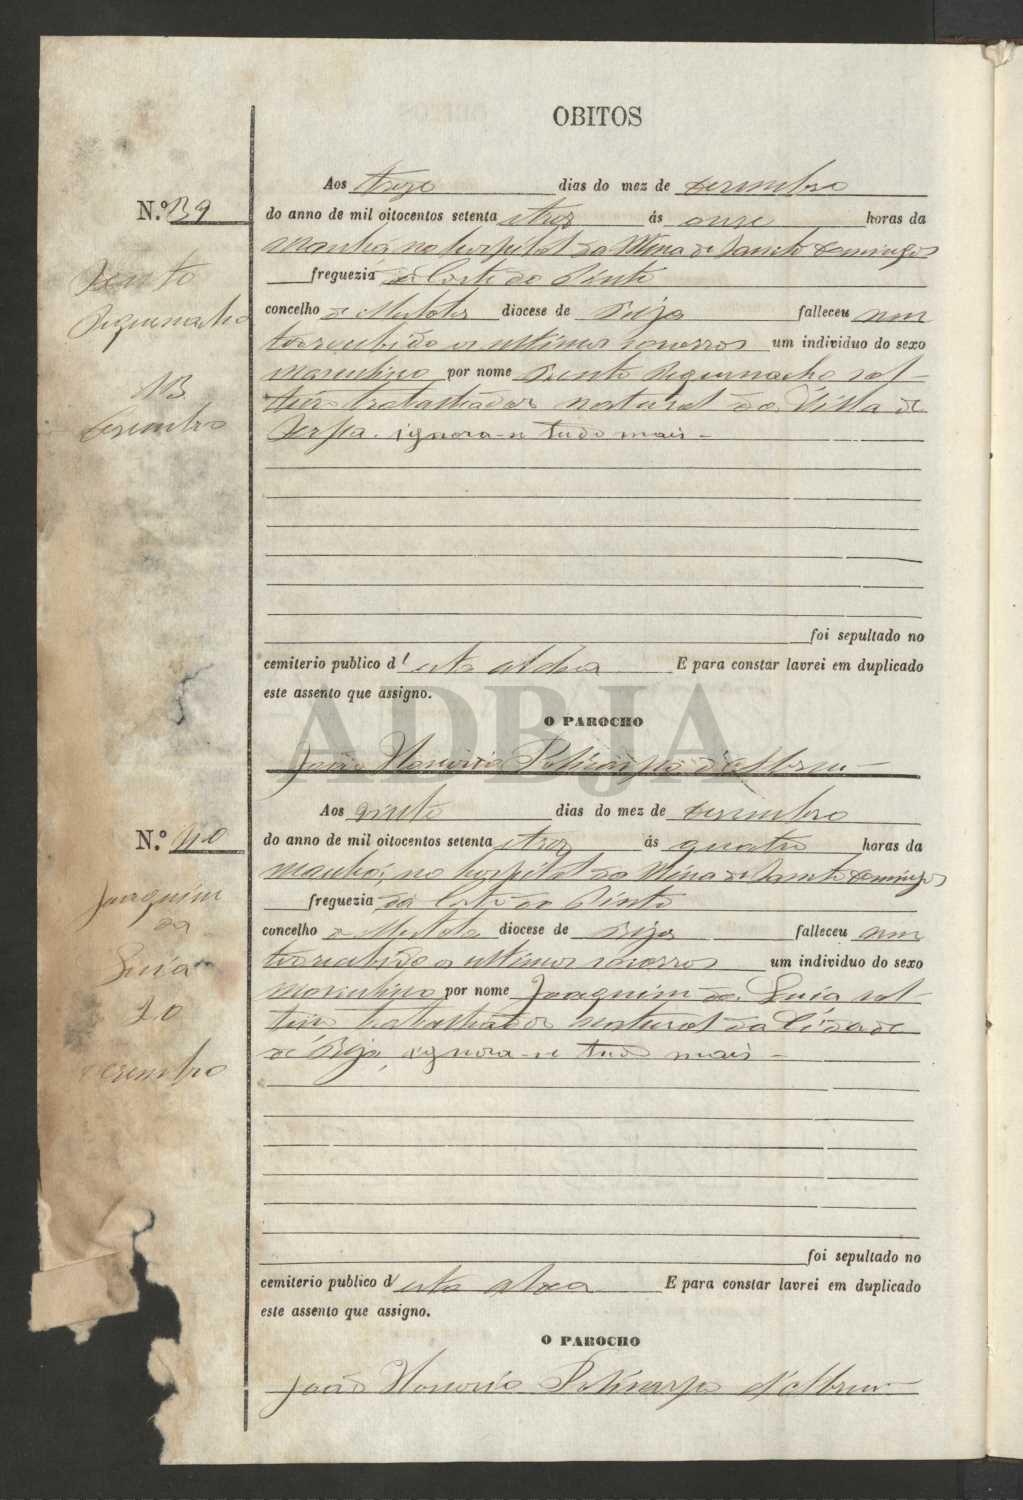 OBITOS
Aos treze dias do mez de dezembro
N.º 139
do anno de mil oitocentos setenta e tres ás onze horas da
manhã, no hospital da Mina de Sancto Domingos
Bento
freguezia da Corte do Pinto
concelho de Mertola diocese de Beja falleceu sem
ter recebido os ultimos socorros um individuo do sexo
masculino por nome Bento sol-
13
teiro trabalhador natural da Villa de
dezembro
Serpa. ignora-se tudo mais -
foi sepultado no
cemiterio publico d'esta aldea E para constar lavrei em duplicado
este assento que assigno.
ADBJA
O PAROCHO
João Honorio Policarpo d'Abreu
Aos vinte dias do mez de dezembro
N.º 140
do anno de mil oitocentos setenta e tres ás quatro horas da
manhã, no hospital da Mina de Sancto Domingos
Joaquim
freguezia da Corte do Pinto
da
concelho de Mertola diocese de Beja falleceu sem
Luzia
ter recebido os ultimos socorros um individuo do sexo
masculino por nome Joaquim da Luzia sol-
20
teiro trabalhador natural da Cidade
de Beja, ignora-se tudo mais -
dezembro
foi sepultado no
cemiterio publico d'esta aldea E para constar lavrei em duplicado
este assento que assigno.
O PAROCHO
João Honorio Policarpo d'Abreu